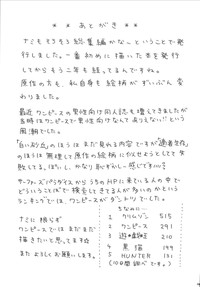 ＊＊ あとがき ＊＊
ナミもそろそろ総集編かな〜ということで発
行しました。一番初めに描いた本を発行
してからもう二年も経ってるんですね。
原作の方も、私自身も絵柄がずいぶん変
わりました。
最近ワンピースの男性向け同人誌も増えてきましたが
当時はワンピースで男性向けなんてありえない!!という
風潮でした。
のほうはまだ見れる内容ですが
のほうは無理して原作の絵柄に似せようとしてて失
敗してる、ぽいし、かなり恥ずかしい感じですよ…
サーファーズパラダイスからうちのHPに来ている人の中で
どういうことばで検索してきてる人が多いのかという
ランキングでは、ワンピースがダントツでした。
ナミに限らず
ワンピースではまだまだ
描きたいと思ってます☆
またよろしくお願いします。
ちなみに…
1 クリムゾン 515
2 ワンピース 291
3 遊★戯★王 210
4 黒猫 199
5 HUNTER 151